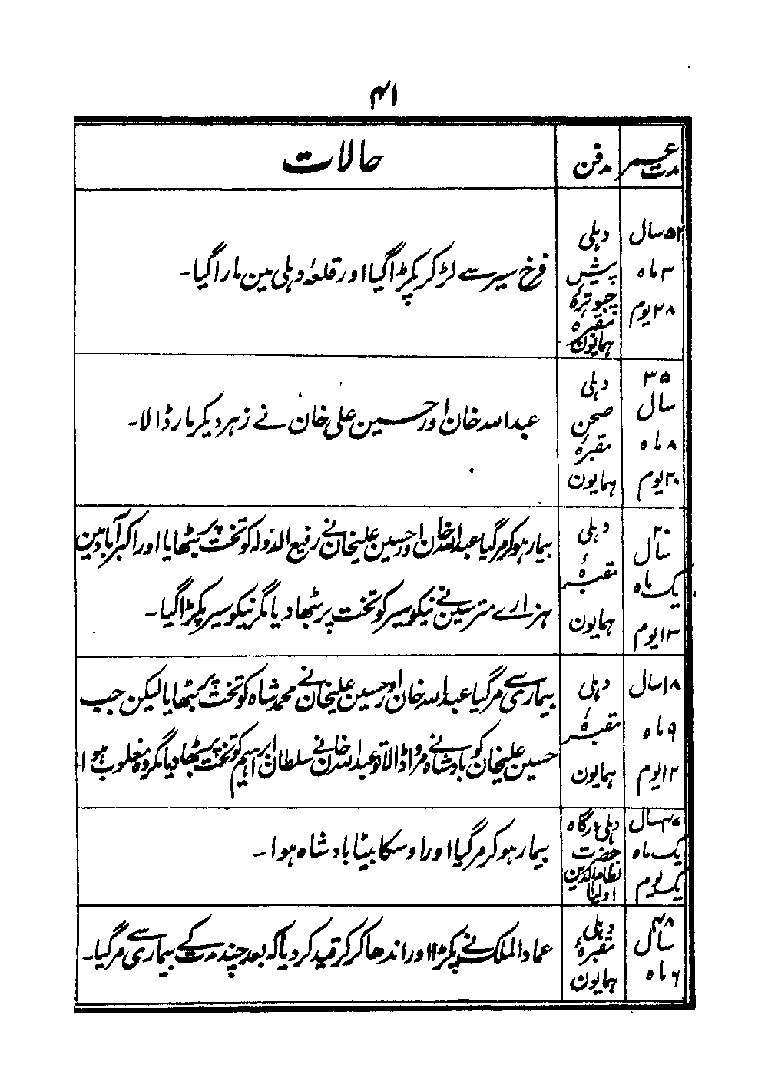 ۴۱
مدت عمر | مدفن | حالات
۵۲ سال ۳ ماہ ۲۸ یوم | دہلی پیش چبوترہ مقبرہ ہمایون | فرخ سیر سے لڑ کر پکڑا گیا اور قلعۂ دہلی مین مارا گیا۔
۳۵ سال ۸ ماہ ۲۰ یوم | دہلی صحن مقبرۂ ہمایون | عبداللہ خان اور حسین علی خان نے زہر دیکر مار ڈالا۔
۲۰ سال یک ماہ ۱۳ یوم | دہلی مقبرۂ ہمایون | بیمار ہو کر مر گیا عبداللہ خان و حسین علیخان نے رفیع الدولہ کو تخت پر بٹھایا اور اکبر آباد مین
ہزارے متر سین نے نیکو سیر کو تخت پر بٹھا دیا مگر نیکو سیر پکڑا گیا۔
۱۸ سال ۹ ماہ ۱۲ یوم | دہلی مقبرۂ ہمایون | بیماری سے مر گیا عبداللہ خان اور حسین علیخان نے محمد شاہ کو تخت پر بٹھایا لیکن جب
حسین علیخان کو بادشاہ نے مروا ڈالا تو عبداللہ خان نے سلطان ابراہیم کو تخت پر بٹھا دیا مگر وہ مغلوب ہوا
۴۷ سال یک ماہ یک یوم | دہلی درگاہ حضرت نظام الدین اولیا | بیمار ہو کر مر گیا اور اوسکا بیٹا بادشاہ ہوا۔
۴۸ سال ۶ ماہ | دہلی مقبرۂ ہمایون | عماد الملک نے پکڑا اور اندھا کر کر قید کر دیا کہ بعد چند مدت کے بیماری سے مر گیا۔